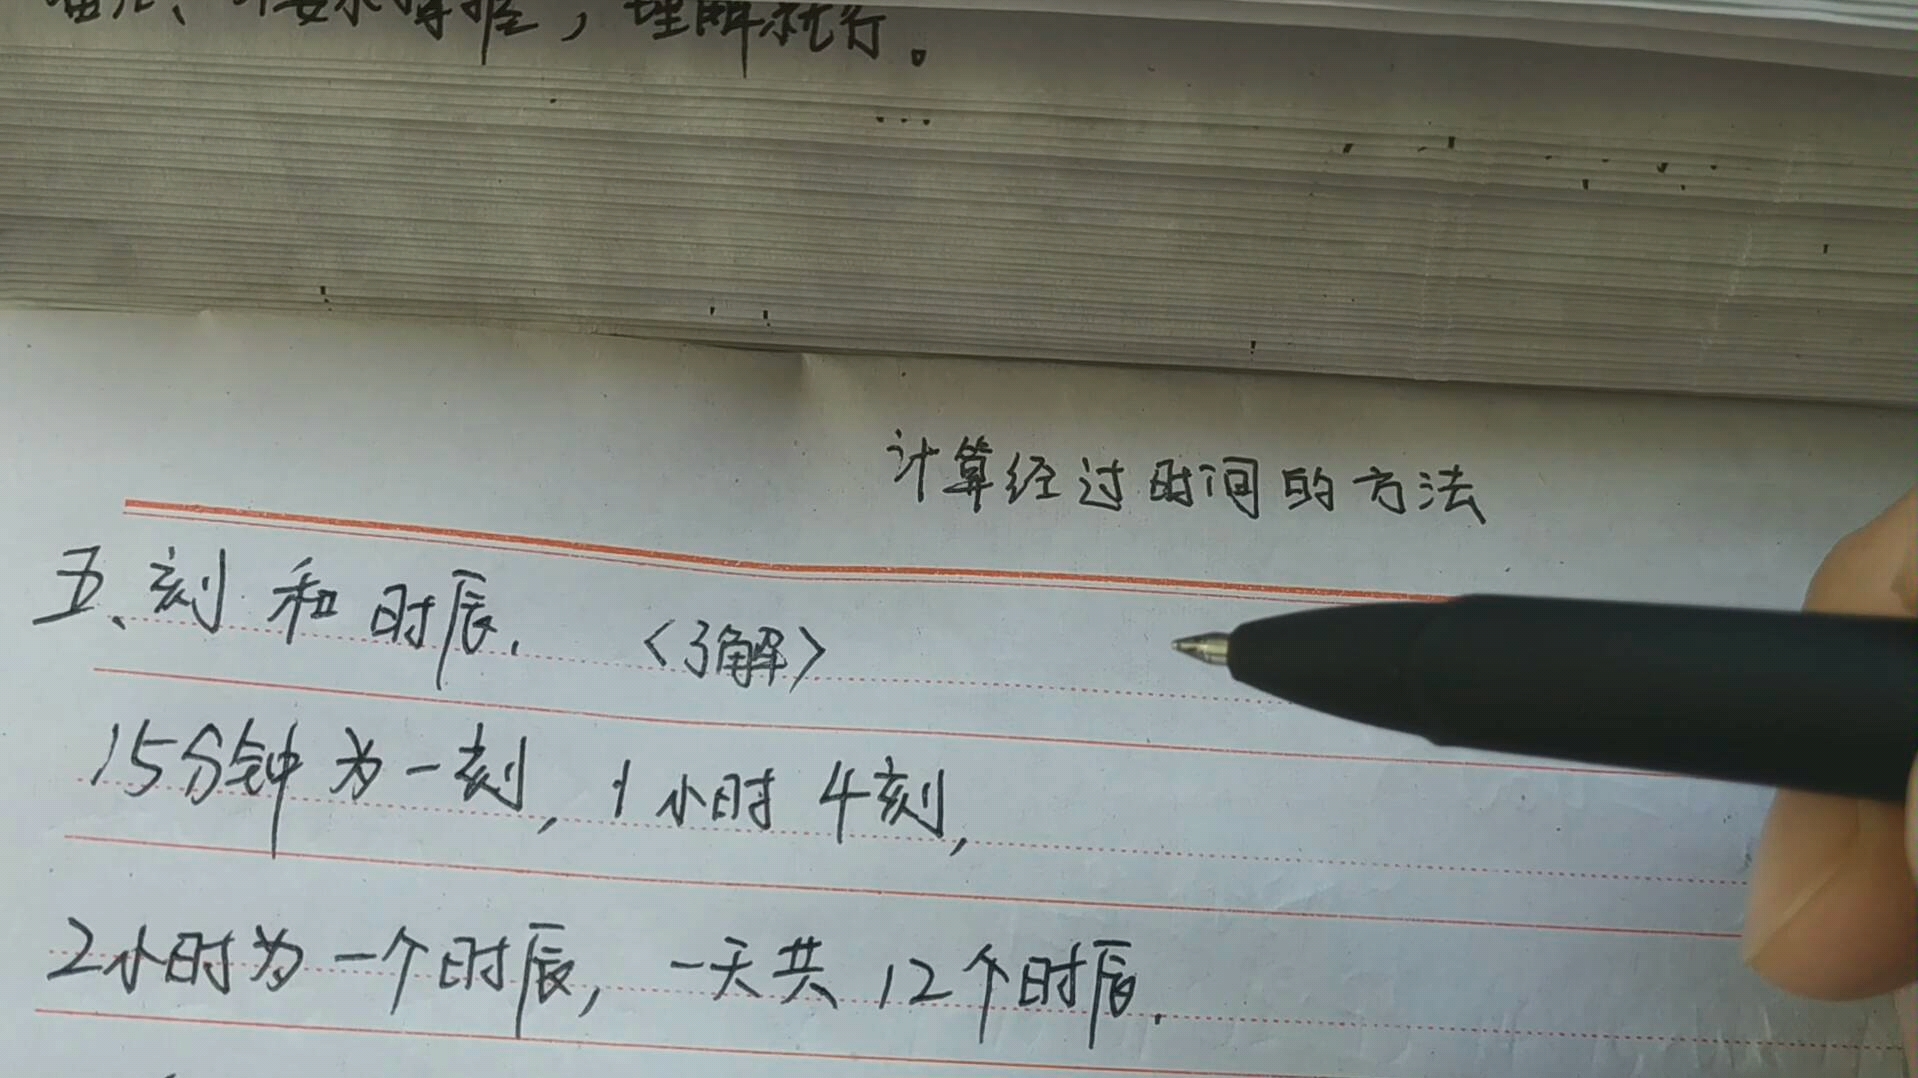 理解就行。
计算经过时间的方法
五、刻和时辰. <了解>
15分钟为一刻, 1小时4刻,
2小时为一个时辰, 一天共12个时辰.